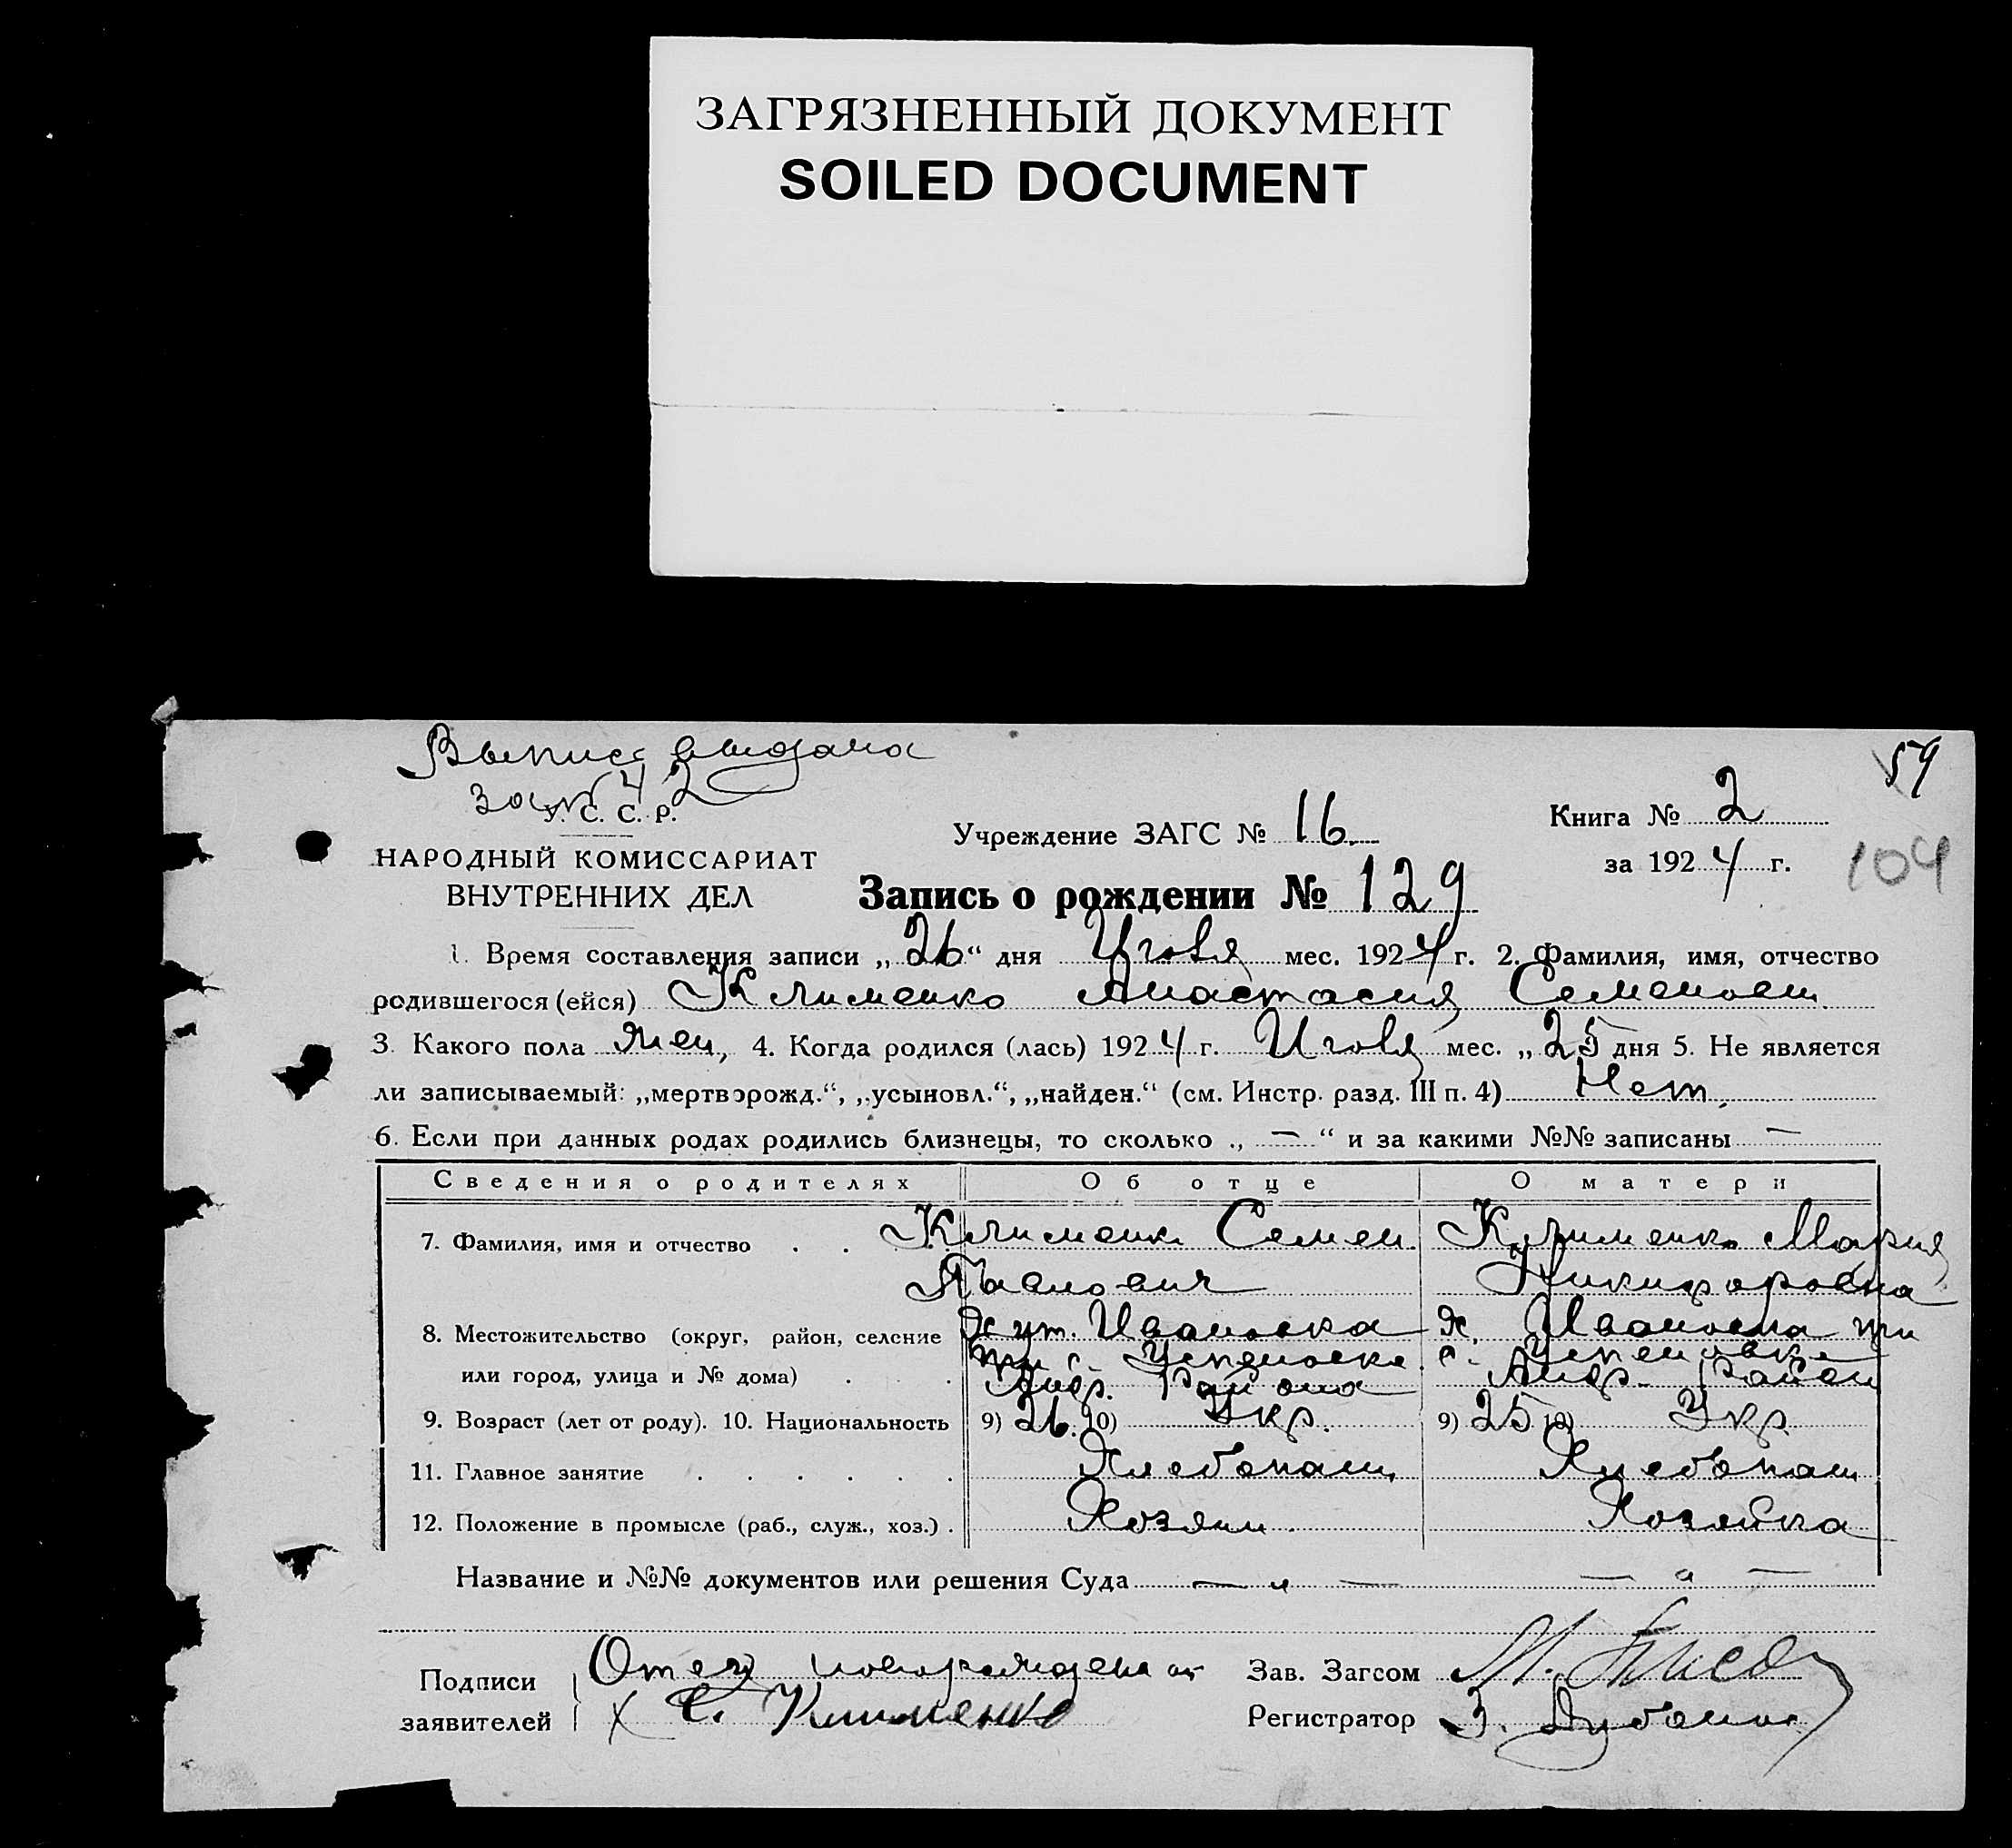 ЗАГРЯЗНЕННЫЙ ДОКУМЕНТ
SOILED DOCUMENT
Выпись выдана
за № 42
59
У. С. С. Р.
НАРОДНЫЙ КОМИССАРИАТ
ВНУТРЕННИХ ДЕЛ
Учреждение ЗАГС № 16
Книга № 2
за 1924 г.
104
Запись о рождении № 129
1. Время составления записи „26“ дня Июля мес. 1924 г. 2. Фамилия, имя, отчество
родившегося (ейся) Клименко Анастасия Семеновн
3. Какого пола жен, 4. Когда родился (лась) 1924 г. Июля мес. „25 дня 5. Не является
ли записываемый: „мертворожд.“, „усыновл.“, „найден.“ (см. Инстр. разд. III п. 4) Нет.
6. Если при данных родах родились близнецы, то сколько „ — “ и за какими №№ записаны —
Сведения о родителях Об отце О матери
7. Фамилия, имя и отчество . . Клименко Семен Клименко Мария
Павлович Никифоровна
8. Местожительство (округ, район, селение Хут. Ивановка х. Ивановка при
при с. Успеновке с. Успеновке
или город, улица и № дома) . . . Андр. Района Андр. Район
9. Возраст (лет от роду). 10. Национальность 9) 26. 10) Укр. 9) 25 10) Укр.
11. Главное занятие . . . . . . Хлебопаш. Хлебопаш
12. Положение в промысле (раб., служ., хоз.) . Хозяин. Хозяйка
Название и №№ документов или решения Суда — „ — — „ —
Подписи
заявителей
Отец новорожденной
х С. Клименко
Зав. Загсом М.
Регистратор